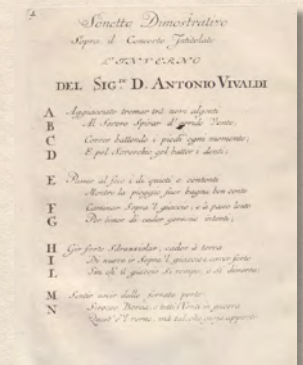 Sonetto Dimostrativo
Sopra il Concerto Intitolato
L'INVERNO
DEL SIG.RE D. ANTONIO VIVALDI
A Aggiacciato tremar trà nevi algenti
B Al Severo Spirar d'orrido Vento,
C Correr battendo i piedi ogni momento;
D E pel Soverchio gel batter i denti;
E Passar al foco i dì quieti e contenti
Mentre la pioggia fuor bagna ben cento
F Caminar Sopra 'l giaccio, e à passo lento
G Per timor di cader gersene intenti;
H Gir forte Sdruzziolar, cader à terra
I Di nuovo ir Sopra 'l giaccio e correr forte
L Sin ch' il giaccio si rompe, e si disserra;
M Sentir uscir dalle ferrate porte
N Sirocco Borea, e tutti i Venti in guerra
Quest' é 'l verno, mà tal, che gioja apporte